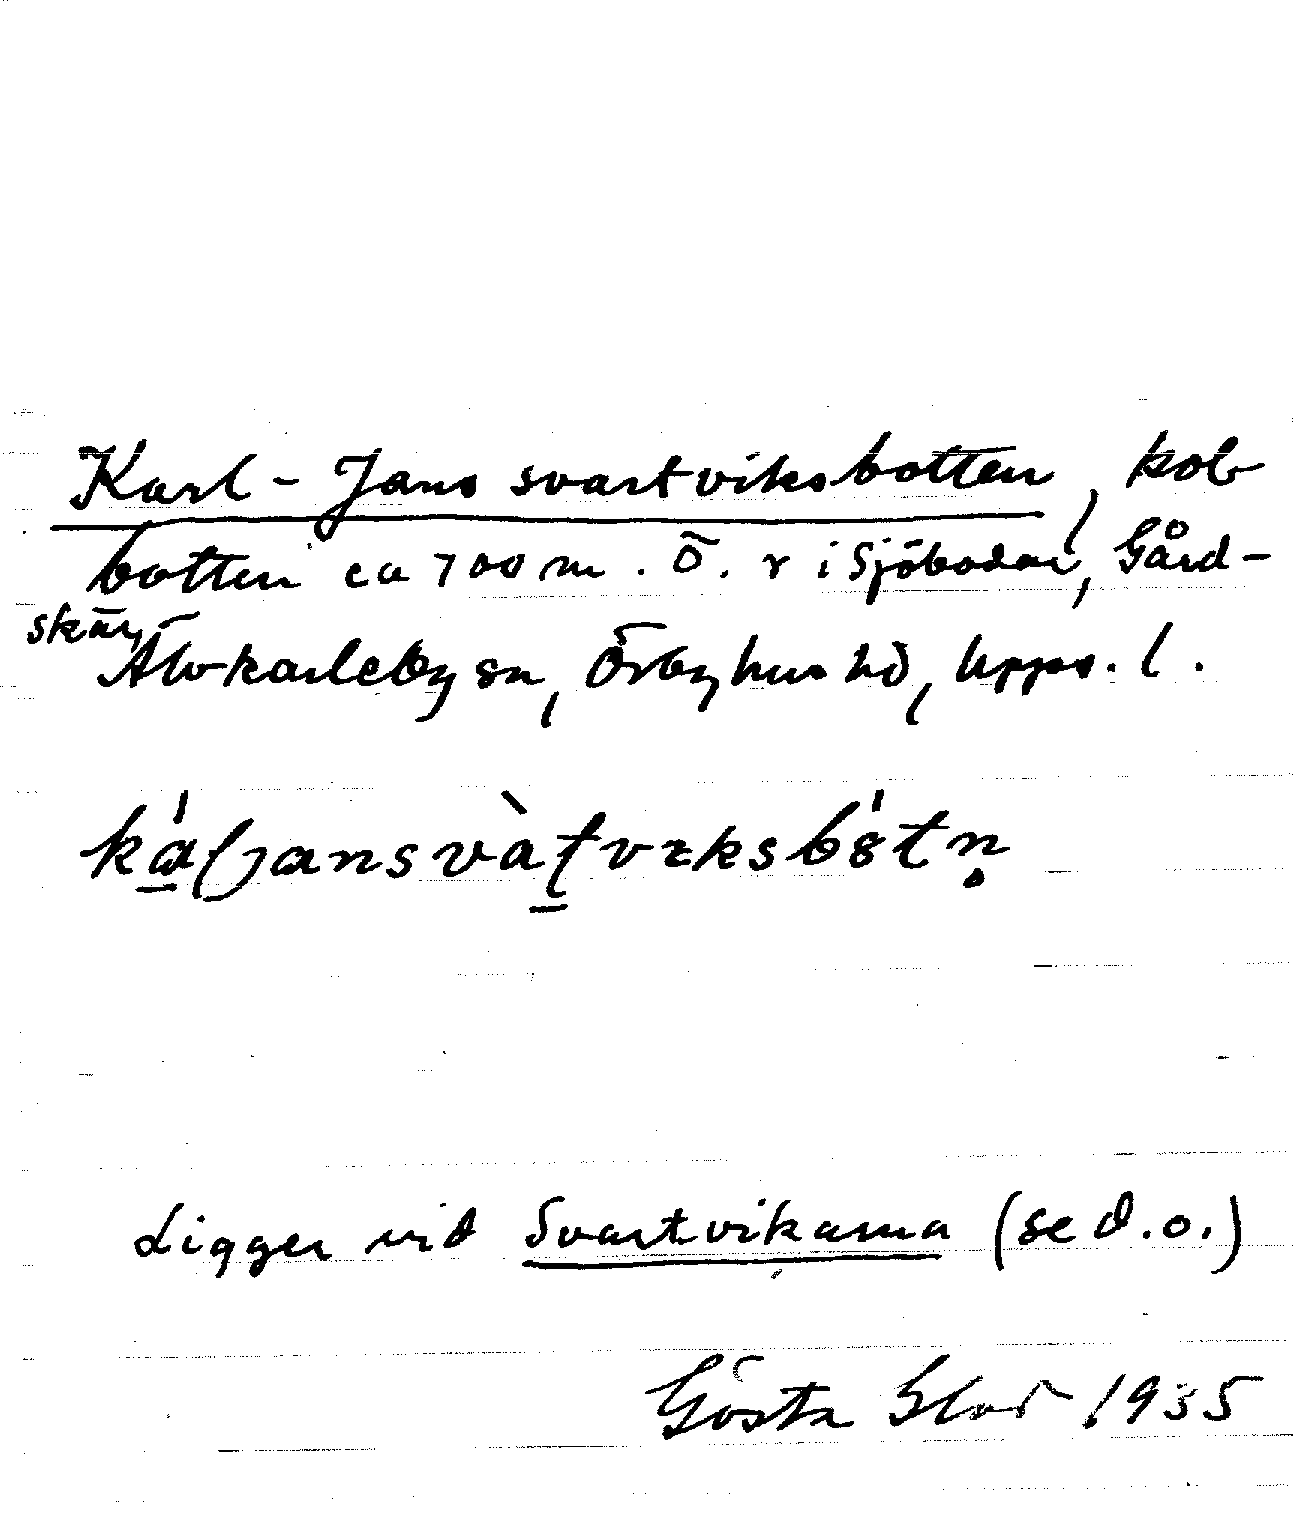 Karl-Jans svartviksbotten, kob
botten ca 700 m. Ö. r i Sjöbodar, Gård-
skär,
Älvkarleby sn, Örbyhus hd, Upps. l.
Ligger vid Svartvikarna (se d.o.)
Gösta 1935